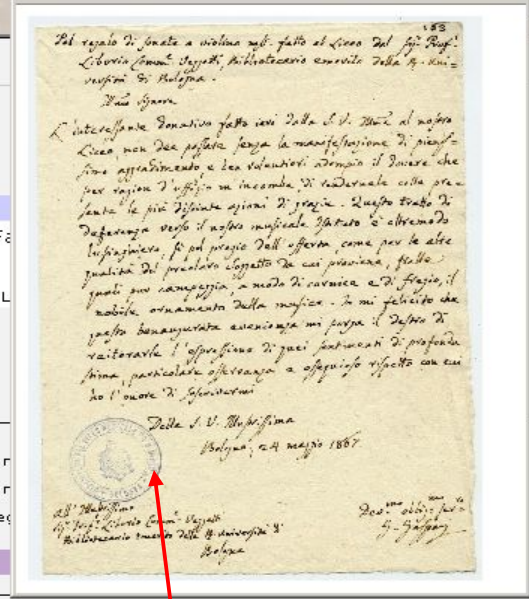 103
Pel regalo di sonate a violino mss. fatto al Liceo dal Sig. Prof.
Liborio Comm. Veggetti, Bibliotecario emerito della R. Uni-
versità di Bologna.
Illmo Signore
L'interessante donativo fatto ieri dalla S. V. Illma al nostro
Liceo, non dee passare senza la manifestazione di pienis-
simo aggradimento, e ben volentieri adempio il dovere che
per ragion d'uffizio m'incombe di rendernele colla pre-
sente le più distinte azioni di grazie. Questo tratto di
deferenza verso il nostro musicale Istituto è oltremodo
lusinghiero, sì pel pregio dell'offerta come per le alte
qualità del preclaro soggetto da cui proviene, fralle
quali pur campeggia, a modo di cornice e di fregio, il
nobile ornamento della musica. Io mi felicito che
questa benaugurata evenienza mi porga il destro di
reiterarle l'espressione di quei sentimenti di profonda
stima, particolare osservanza e ossequioso rispetto con cui
ho l'onore di soscrivermi
Della S. V. Illustrissima
Bologna, 24 maggio 1867
All'Illustrissimo
Sig. Prof. Liborio Comm. Veggetti
Bibliotecario emerito della R. Università di
Bologna
Devmo obbmo serv.
G. Gaspari